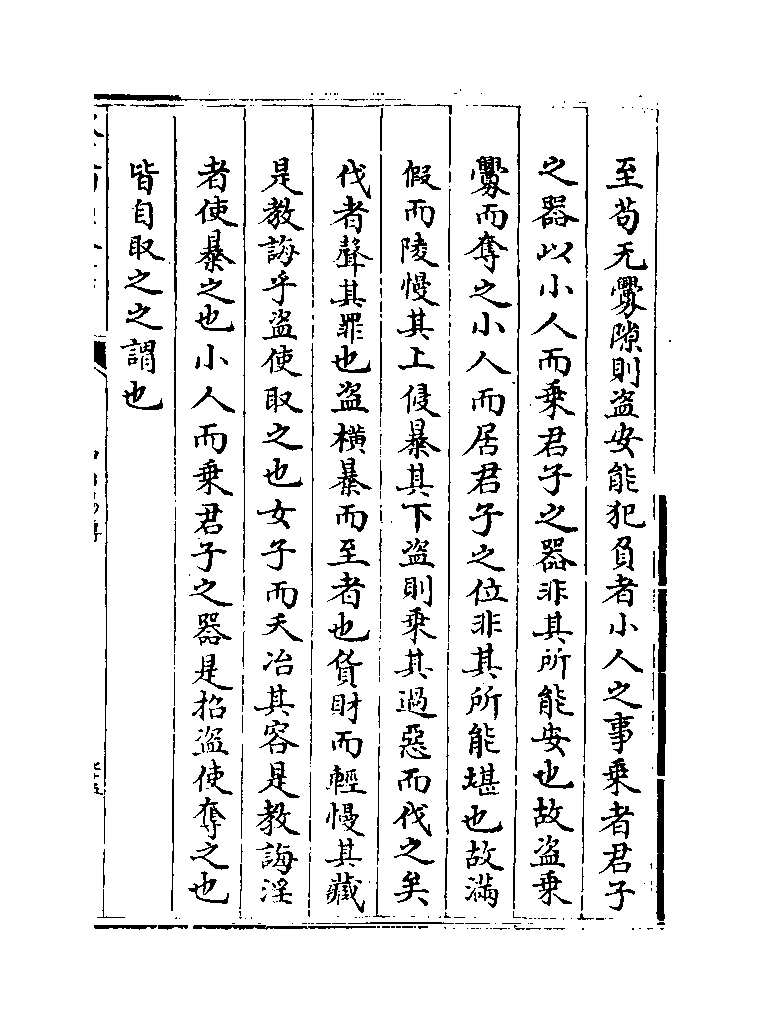 至苟无釁隙則盗安能犯負者小人之事乗者君子
之器以小人而乗君子之器非其所能安也故盗乗
釁而奪之小人而居君子之位非其所能堪也故満
假而陵慢其上侵暴其下盗則乗其過惡而伐之矣
伐者聲其罪也盗橫暴而至者也貨財而輕慢其藏
是教誨乎盗使取之也女子而夭冶其容是教誨淫
者使暴之也小人而乗君子之器是招盗使奪之也
皆自取之之謂也